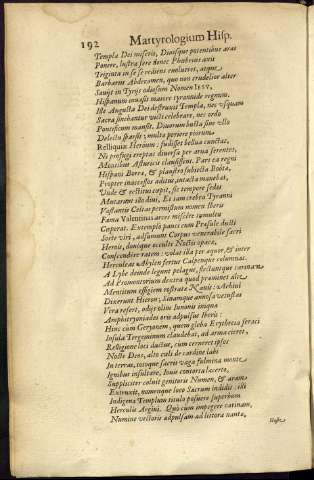 192 Martyrologium Hisp.
Templa Dei miseris, Divisque potentibus aras
Ponere, lustra fere donec Phœbeius axis
Triginta in se se rediens evolveret, atque
Barbarus Abderamen, quo non crudelior alter
Sæviit in Tyrijs odiosum Nomen Iesu,
Hispanum invasit marcere tyrannide regnum.
Iste Augusta Dei destruxit Templa, nec usquam
Sacra sinebantur vulti celebrare, nec ordo
Pontificum mansit. Divorum busta sine ullo
Delectu sparsit; multa periere piorum
Relliquiæ Heroum; fudisset bellua cunctas,
Ni profugi ereptas diversa per arva ferentes,
Monstrent Asturicis claudissent. Pars ea regni
Hispani Borea, & plaustro subiecta Boötæ,
Propter inaccessos aditus, intacta manebat,
Unde & rectius cœpit, sic tempore sedes
Mutarunt ibi divi, Et iam crebra Tyranni
Vastantis Celtas permistum nomen Iberis
Fama Valentinas arces miscére tumultu
Cœperat. Extemplo pauci cum Præsule ducti
Sorte viri, adsumunt Corpus venerabile sacri
Herois, donique occultè Noctis opaca,
Conscendêre ratem: volat illa per æquor, & inter
Herculeas Abylen fertur Calpenque columnas.
A Lybe deinde legunt pelagus, flectuntque carinam
Ad Promontorium dextra quod prominet alte
Mentitum effigiem rostratæ Navis: & Arbivi
Dixerunt Hieron; Romanque annosa vetustas
Vera refert, obijt olim Iunonis iniqua
Amphitryoniades oris adpulsus Iberis:
Hinc cum Geryonem, quem gleba Erythreia feraci
Insula Tergeminum claudebat, ad arma cieret,
Religione loci ductus, cum cerneret ipsos
Nocte Deos, alto cœli de cardine labi
In terras, totoque sacri vaga fulmina monte
Ignibus insultare, Iovis contorta lacerto,
Suppliciter coluit genitoris Numen, & aram
Extruxit, nomenque loco Sacrum indidit: ibi
Indigena Templum titulo posuere superbum
Herculis Argivi. Quo cum impegere carinam,
Numine vectoris adpulsam ad littora nauta,
Hosp.